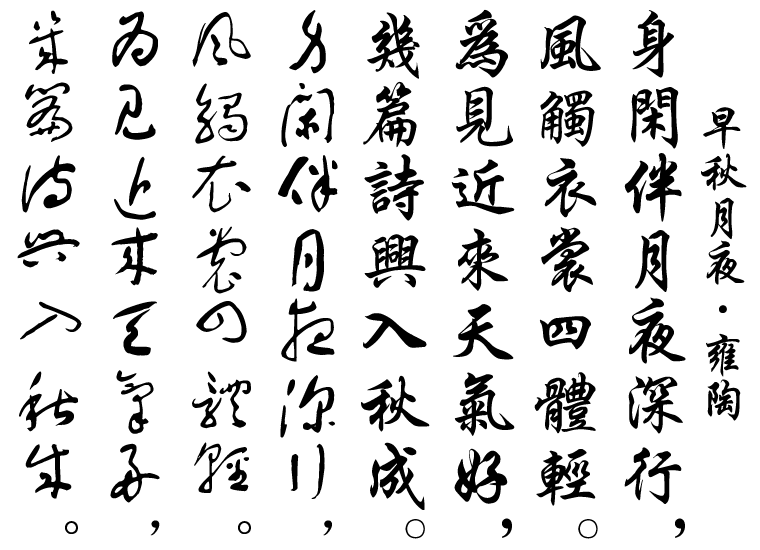 早秋月夜·雍陶
身閑伴月夜深行，
風觸衣裳四體輕。
爲見近來天氣好，
幾篇詩興入秋成。
身閑伴月夜深行，
風觸衣裳四體輕。
爲見近來天氣好，
幾篇詩興入秋成。